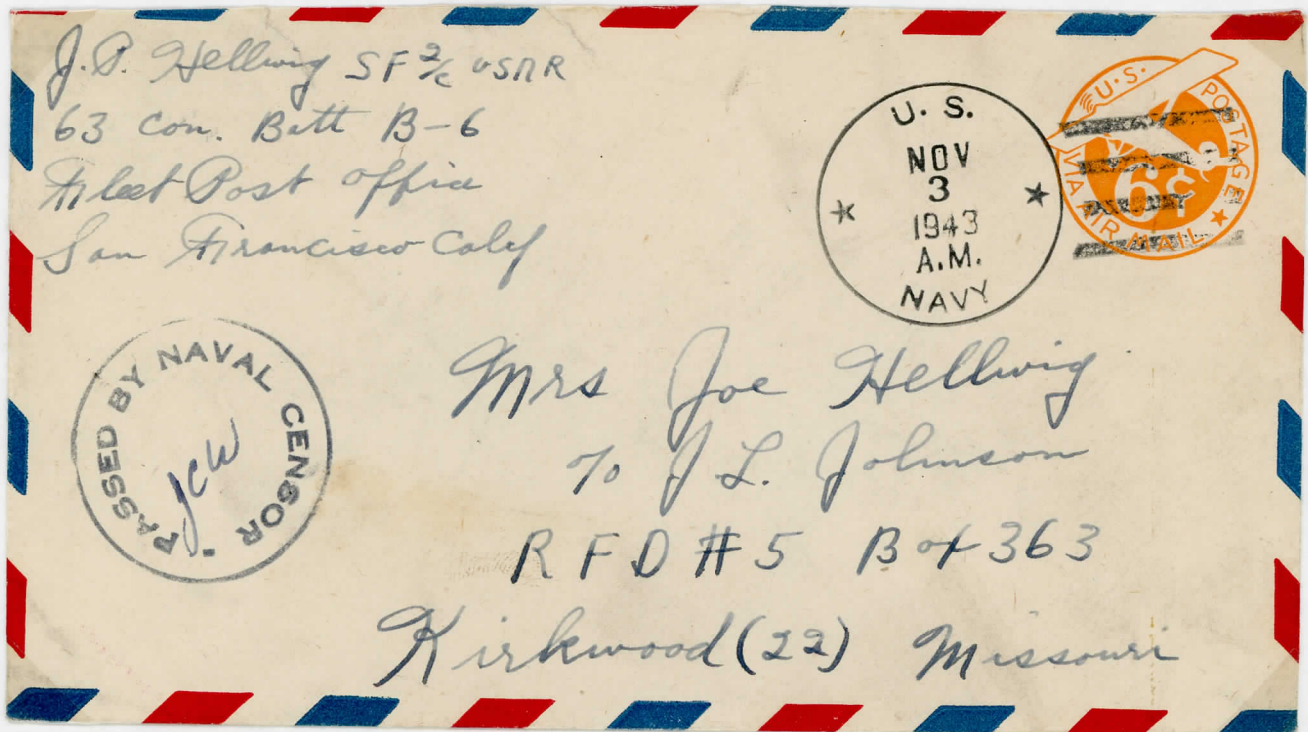 J. P. Hellwig SF 2/c USNR
63 Con. Batt B-6
Fleet Post Office
San Francisco Calif
U. S.
NOV
3
1943
A.M.
NAVY
U.S. POSTAGE
6¢
VIA AIR MAIL
PASSED BY NAVAL CENSOR
jcw
Mrs Joe Hellwig
c/o J L. Johnson
RFD #5 Box 363
Kirkwood (22) Missouri